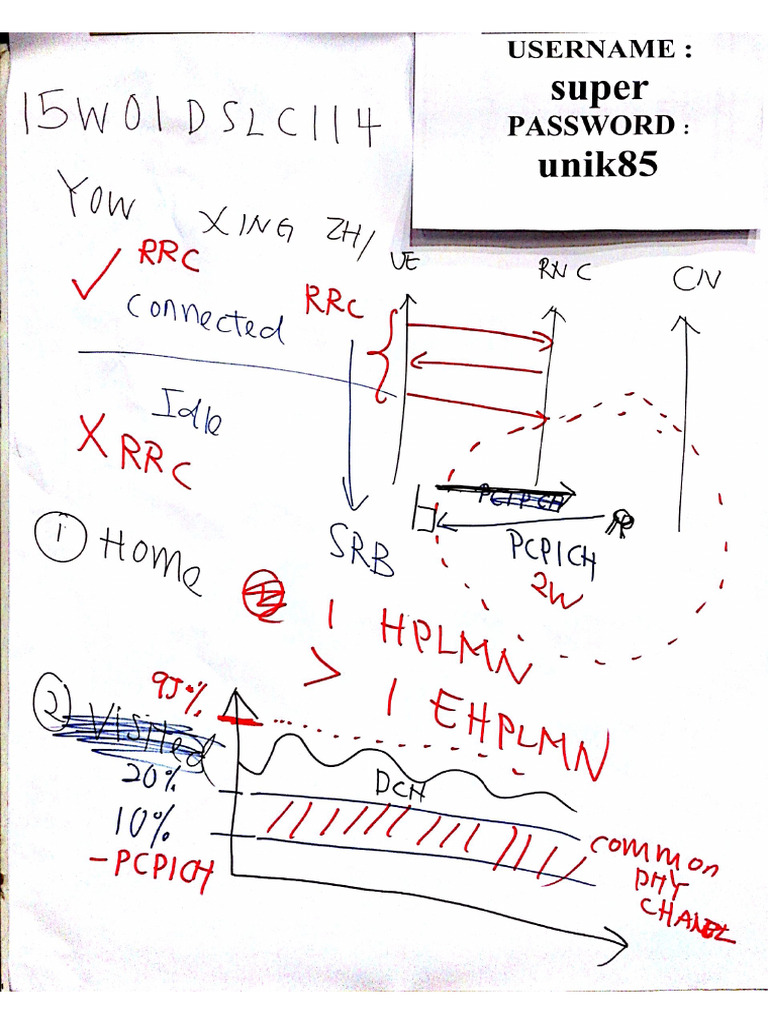 USERNAME :
super
PASSWORD :
unik85
15W01DSLC114
YOW XING ZHI
RRC
Connected
Idle
X RRC
UE RNC CN
RRC
SRB
PCPICH
PCPICH
2W
1 Home
2 Visited
1 HPLMN
> 1 EHPLMN
95%
20%
10%
-PCPICH
DCH
common
PHY
CHANEL